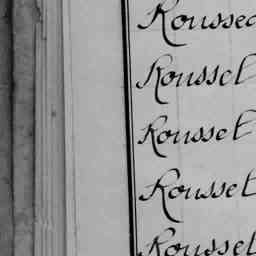 Roussea
Roussel
Rousset
Rousset
Rousset